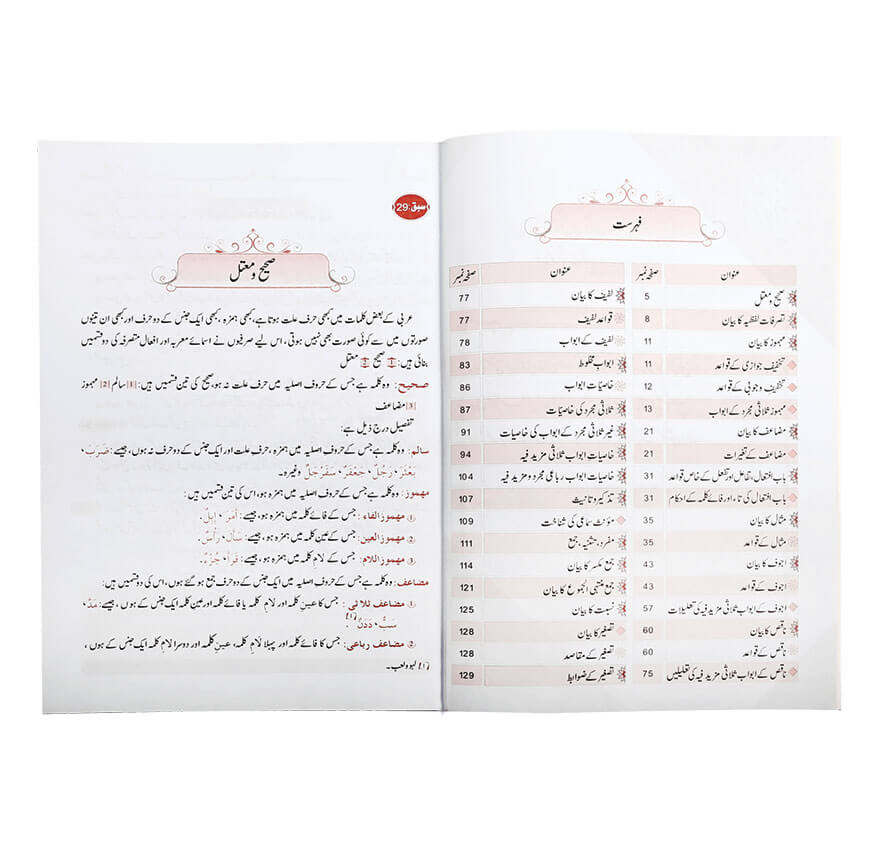 فہرست
عنوان صفحہ نمبر عنوان صفحہ نمبر
صحیح و معتل 5 لفیف کا بیان 77
تصرفات لفظیہ کا بیان 8 قواعد لفیف 77
مہموز کا بیان 11 لفیف کے ابواب 78
تخفیف جوازی کے قواعد 11 ابواب مخلوط 83
تخفیف وجوبی کے قواعد 12 خاصیات ابواب 86
مہموز ثلاثی مجرد کے ابواب 13 ثلاثی مجرد کی خاصیات 87
مضاعف کا بیان 21 غیر ثلاثی مجرد کے ابواب کی خاصیات 91
مضاعف کے تغیرات 21 خاصیات ابواب ثلاثی مزید فیہ 94
باب افتعال، تفاعل اور تفعل کے خاص قواعد 31 خاصیات ابواب رباعی مجرد و مزید فیہ 104
باب افتعال کی تاء، اور فائے کلمہ کے احکام 31 تذکیر و تانیث 107
مثال کا بیان 35 مؤنث سماعی کی شناخت 109
مثال کے قواعد 35 مفرد، تثنیہ، جمع 111
اجوف کا بیان 43 جمع مکسر کا بیان 114
اجوف کے قواعد 43 جمع منتہی الجموع کا بیان 121
اجوف کے ابواب ثلاثی مزید فیہ کی تعلیلات 57 نسبت کا بیان 125
ناقص کا بیان 60 تصغیر کا بیان 128
ناقص کے قواعد 60 تصغیر کے مقاصد 128
ناقص کے ابواب ثلاثی مزید فیہ کی تعلیلیں 75 تصغیر کے ضوابط 129
سبق:29
صحیح و معتل
عربی کے بعض کلمات میں کبھی حرف علت ہوتا ہے، کبھی ہمزہ، کبھی ایک جنس کے دو حرف اور کبھی ان تینوں
صورتوں میں سے کوئی صورت بھی نہیں ہوتی، اس لیے صرفیوں نے اسمائے معربہ اور افعال متصرفہ کی دو قسمیں
بنائی ہیں: ① صحیح ② معتل
صحیح: وہ کلمہ ہے جس کے حروف اصلیہ میں حرف علت نہ ہو، صحیح کی تین قسمیں ہیں: [1] سالم [2] مہموز
[3] مضاعف
تفصیل درج ذیل ہے:
سالم: وہ کلمہ ہے جس کے حروف اصلیہ میں ہمزہ، حرف علت اور ایک جنس کے دو حرف نہ ہوں، جیسے: ضَرَبَ،
بَعْثَرَ، رَجُلٌ، جَعْفَرٌ، سَفَرْجَلٌ وغیرہ۔
مہموز: وہ کلمہ ہے جس کے حروف اصلیہ میں ہمزہ ہو، اس کی تین قسمیں ہیں:
① مہموز الفاء: جس کے فائے کلمہ میں ہمزہ ہو، جیسے: أَمَرَ، إِبِلٌ.
② مہموز العین: جس کے عین کلمہ میں ہمزہ ہو، جیسے: سَأَلَ، رَأْسٌ.
③ مہموز اللام: جس کے لام کلمہ میں ہمزہ ہو، جیسے: قَرَأَ، جُزْءٌ.
مضاعف: وہ کلمہ ہے جس کے حروف اصلیہ میں ایک جنس کے دو حرف جمع ہو گئے ہوں، اس کی دو قسمیں ہیں:
① مضاعف ثلاثی: جس کا عین کلمہ اور لام کلمہ یا فائے کلمہ اور عین کلمہ ایک جنس کے ہوں، جیسے: مَدَّ،
سَبَبٌ، دَدَنٌ [1]
② مضاعف رباعی: جس کا فائے کلمہ اور پہلا لام کلمہ، عین کلمہ اور دوسرا لام کلمہ ایک جنس کے ہوں،
[1] لہو و لعب۔